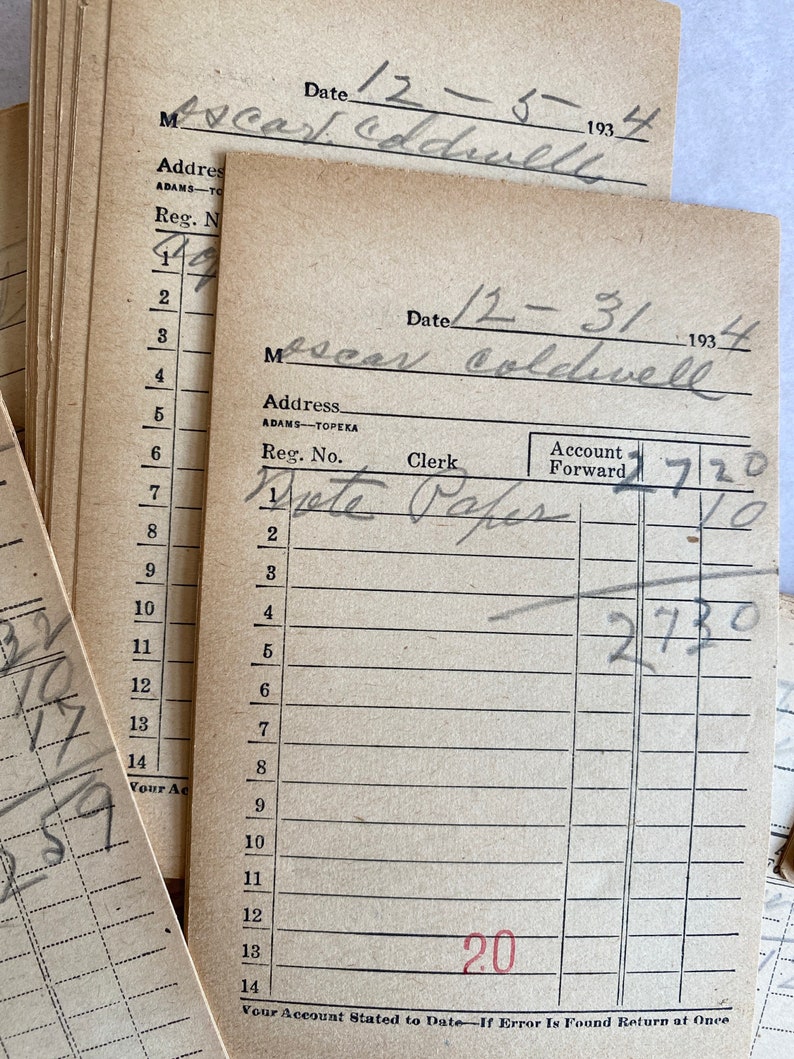 Date 12 - 5 - 1934
M oscar coldwell
Addres
ADAMS—TO
Reg. N
1
2
3
4
5
6
7
8
9
10
11
12
13
14
Your Ac
Date 12 - 31 1934
M oscar coldwell
Address
ADAMS—TOPEKA
Reg. No. Clerk Account Forward 27 20
1 Note Paper 10
2
3
4 27 30
5
6
7
8
9
10
11
12
13 20
14
Your Account Stated to Date—If Error Is Found Return at Once
32
10
17
2 59